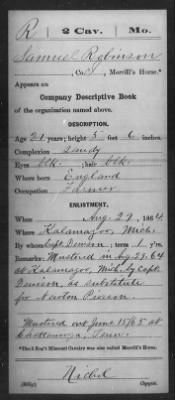 R | 2 Cav. | Mo.
Samuel Robinson
, Co. , Merrill's Horse.*
Appears on
Company Descriptive Book
of the organization named above.
DESCRIPTION.
Age 21 years; height 5 feet 6 inches.
Complexion Sandy
Eyes blk. ; hair blk.
Where born England
Occupation Farmer
ENLISTMENT.
When Aug. 29, 1864.
Where Kalamazoo, Mich.
By whom Capt Denison; term 1 y'rs.
Remarks: Mustered in Aug 29, 64
at Kalamazoo, Mich. by Capt.
Denison, as substitute
for Newton Pierson.
Mustered out June 15/65 at
Chattanooga, Tenn.
*The 2 Reg't Missouri Cavalry was also called Merrill's Horse.
Copyist.